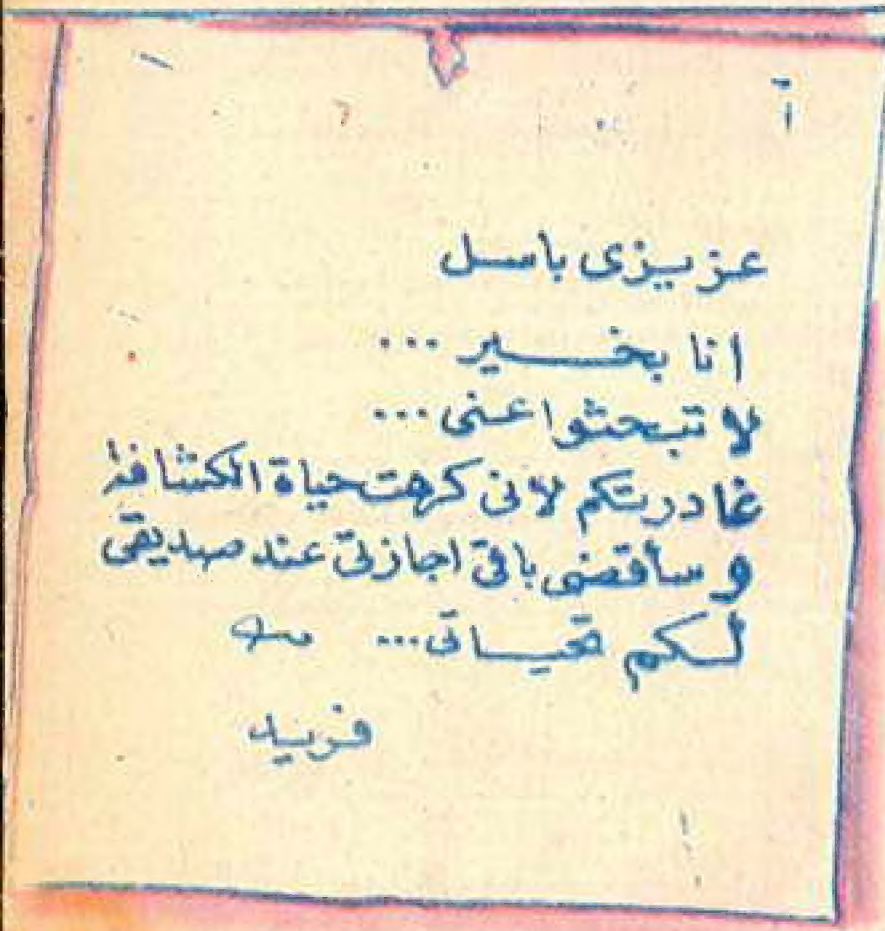 عزيزى باسل
انا بخير ...
لا تبحثوا عنى ...
غادرتكم لانى كرهت حياة الكشافة
و سأقضى باقى اجازتى عند صديقى
لكم تحياتى ...
فريد